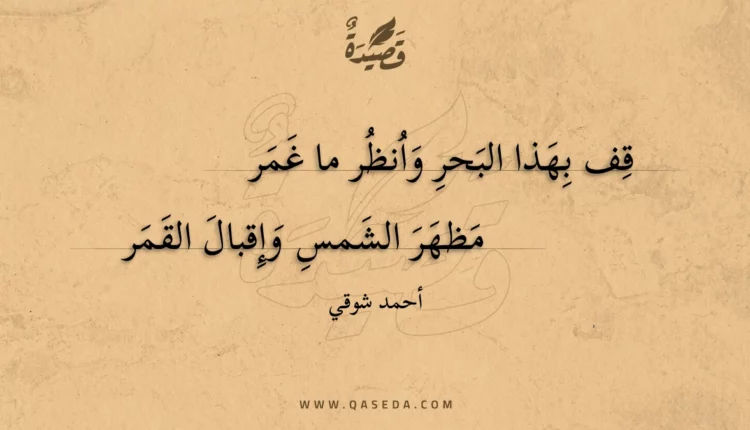 قَصِيدَةٌ
قِف بِهَذا البَحرِ وَاُنظُر ما غَمَر
مَظهَرَ الشَمسِ وَإِقبالَ القَمَر
أحمد شوقي
WWW.QASEDA.COM